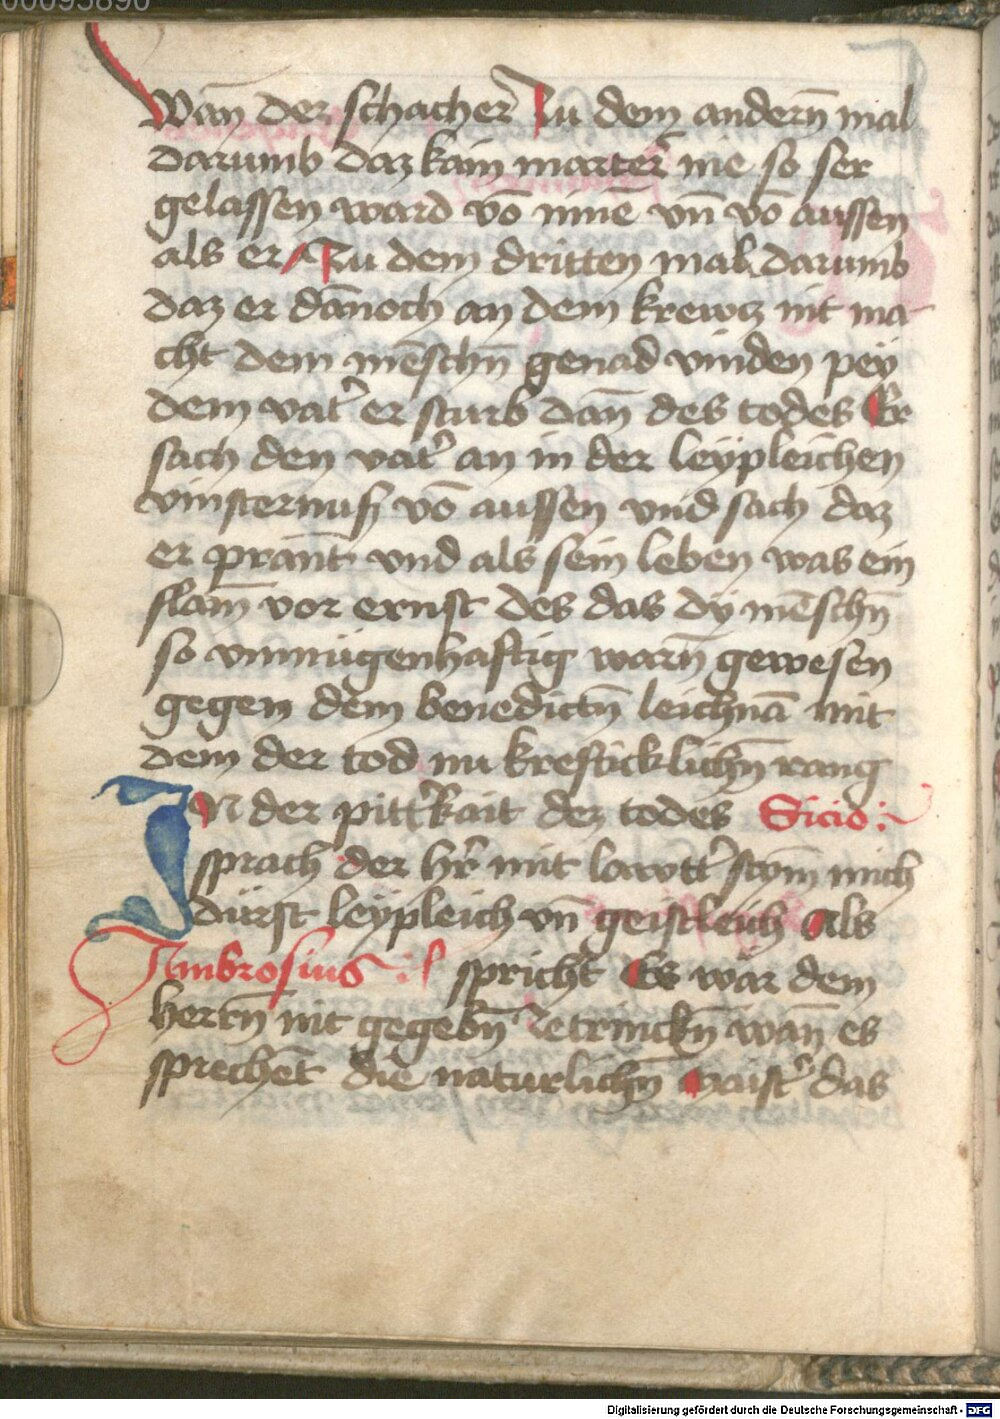 00095890
Wan̄ der schacher Zu dem andern̄ mal
darumb daz kain marter̄ nie so ser
gelassen ward vō inne vn̄ vō aussen
als er Zu dem dritten mal darumb
daz er dānoch an dem krewcz nit ma-
cht dem mēschn̄ genad vinden pey
dem vat' er sturb dan̄ des todes Er
sach den vat' an in der leypleichen
vinsternuß vō aussen vnd sach daz
er pran̄t vnd als sein leben was ein
flam̄ vor ernst des das dy mēschn̄
so vnmügenhaftig warn̄ gewesen
gegen dem benedictn̄ leichnā mit
dem der tod nu krefticklichn̄ rang
IN der pitt'kait dez todes Sicio:
sprach der hr̄ mit lawtt' stym̄ mich
dürst leypleich vn̄ geistleich Als
Ambrosius : spricht Es war dem
herrn̄ nit gegebn̄ zetrinckn̄ wan̄ es
sprechēt die naturlichn̄ maist' das
Digitalisierung gefördert durch die Deutsche Forschungsgemeinschaft - DFG